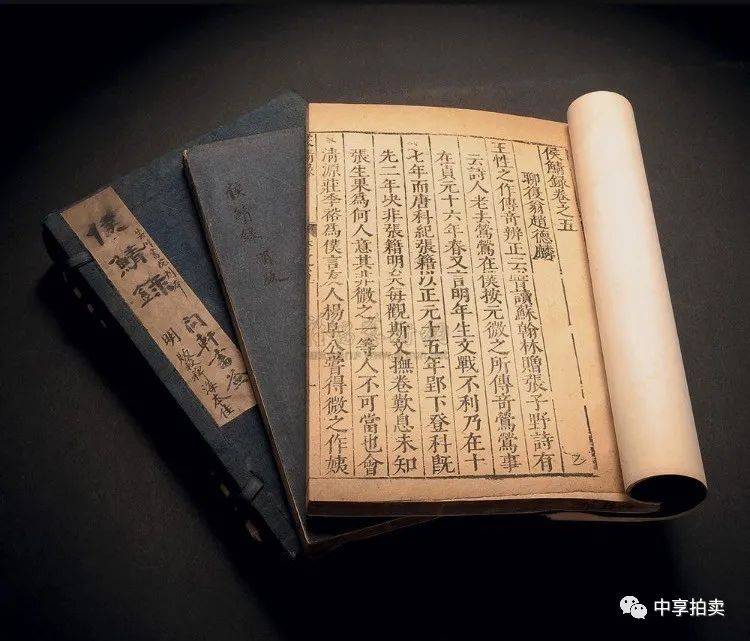 侯鯖錄卷之五
聊復翁趙德麟
王性之作傳奇辨正云嘗讀蘇翰林贈張子野詩有
云詩人老去鶯鶯在僕按元微之所傳奇鶯鶯事
在貞元十六年春又言明年生文戰不利乃在十
七年而唐科紀張籍以正元十五年郢下登科既
先二年决非張籍明矣每觀斯文撫卷歎息未知
張生果爲何人意其非微之一等人不可當也會
清源莊季裕爲僕言友人楊阜公嘗得微之作姨
侯鯖錄
侯鯖錄
明
中享拍卖